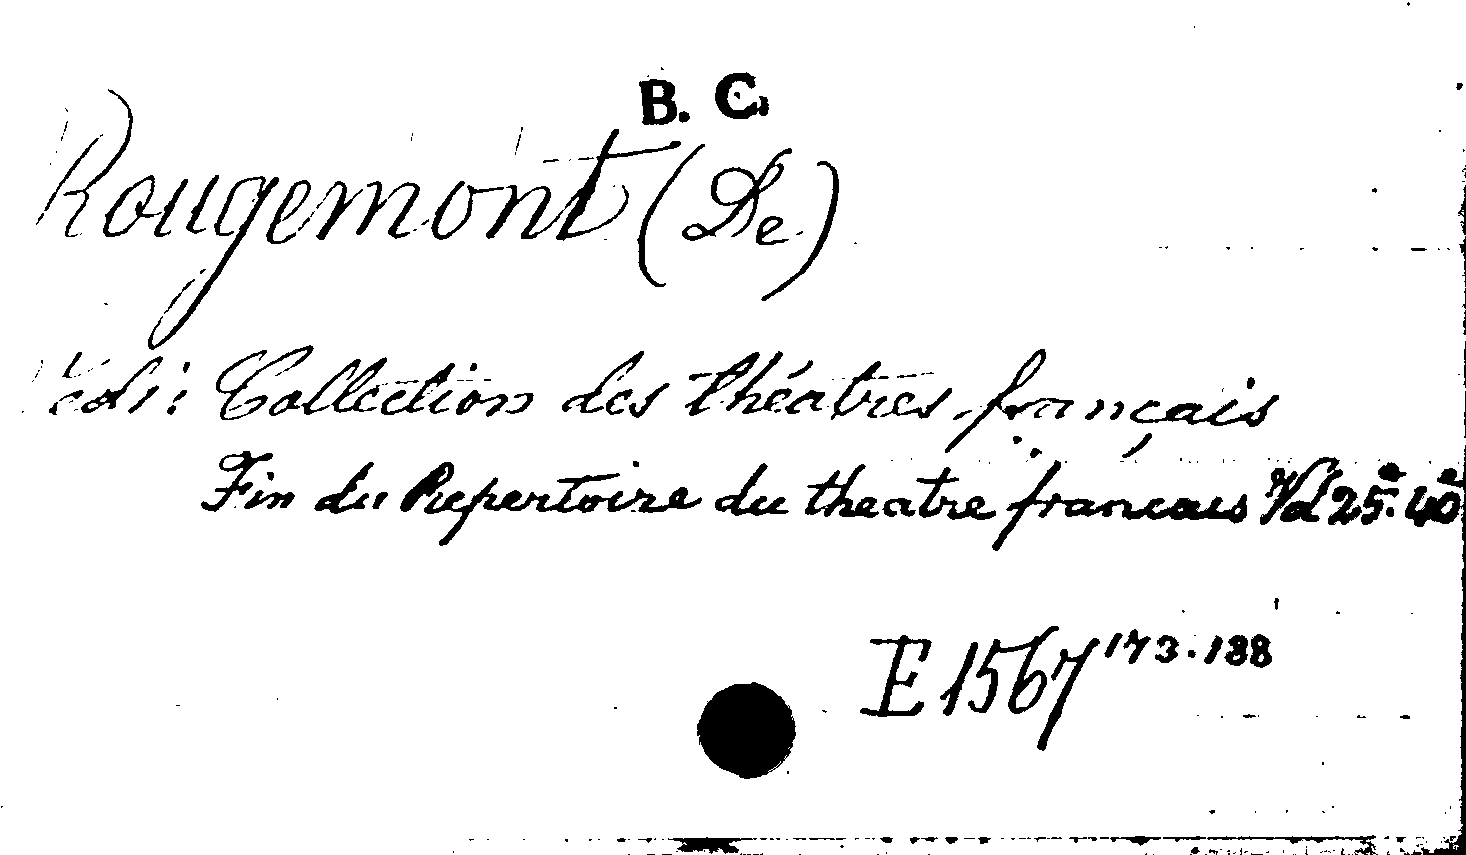 B. C.
Rougemont (De)
Vedi: Collection des théatres français
Fin du Repertoire du theatre francais Vol 25º.40º
E 1567 173.188